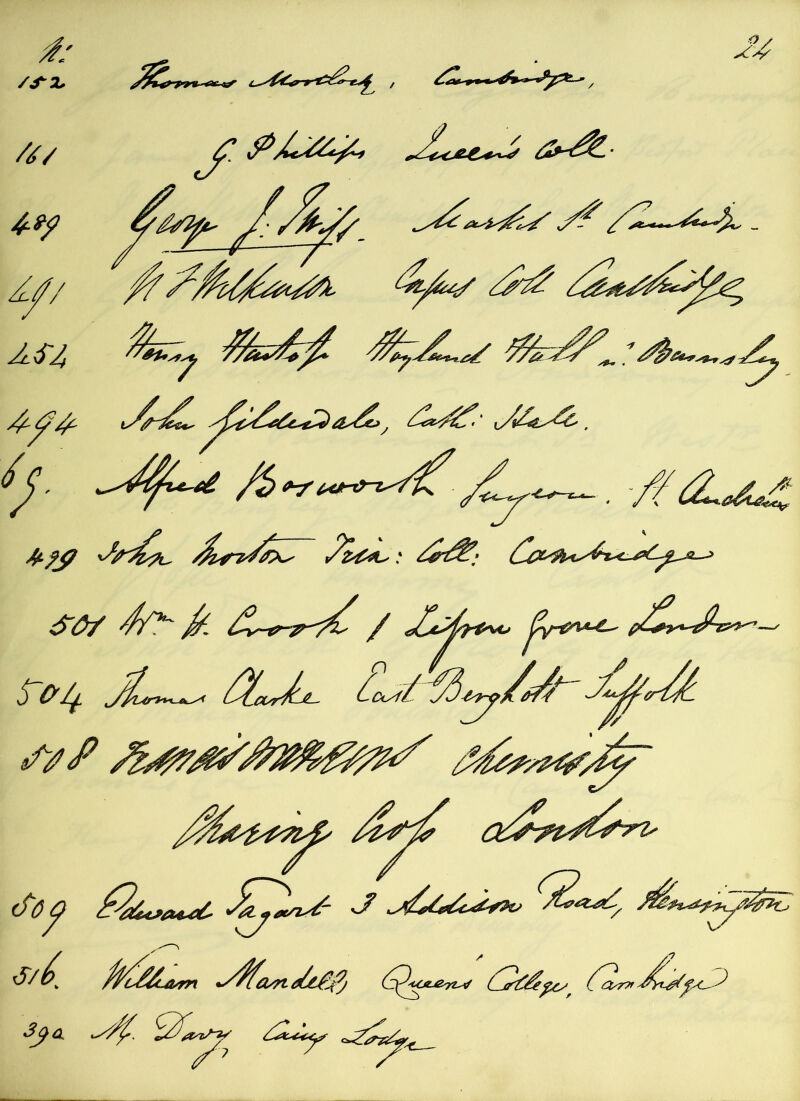 No. 24
152 Thomas Mortlock, Cambridge,
161 G. Phillips Queen's Coll.
489 George J: Twiss. Market St Cambridge -
491 Wilkinson Corpus Coll Cambridge
454 Henry Hartop Hoyland Hall nr. Barnsley
494 John Gilderdale, Cath: Hall.
69. Alfred Bosworth Surgeon. St. Andrew's St
499 John Morton Trin: Coll: Cambridge
501 Wm. H. Crook 1 Lisson Grove London -
504 Thomas Clarke East Bergholt Suffolk
508 Francis Watkins Chemistry
Charing Cross London
509 Edward Tagart 3 Addison Road, Kensington
516. William Mandell, Queens' College, Cambridge
39a M. Davy, Caius Lodge